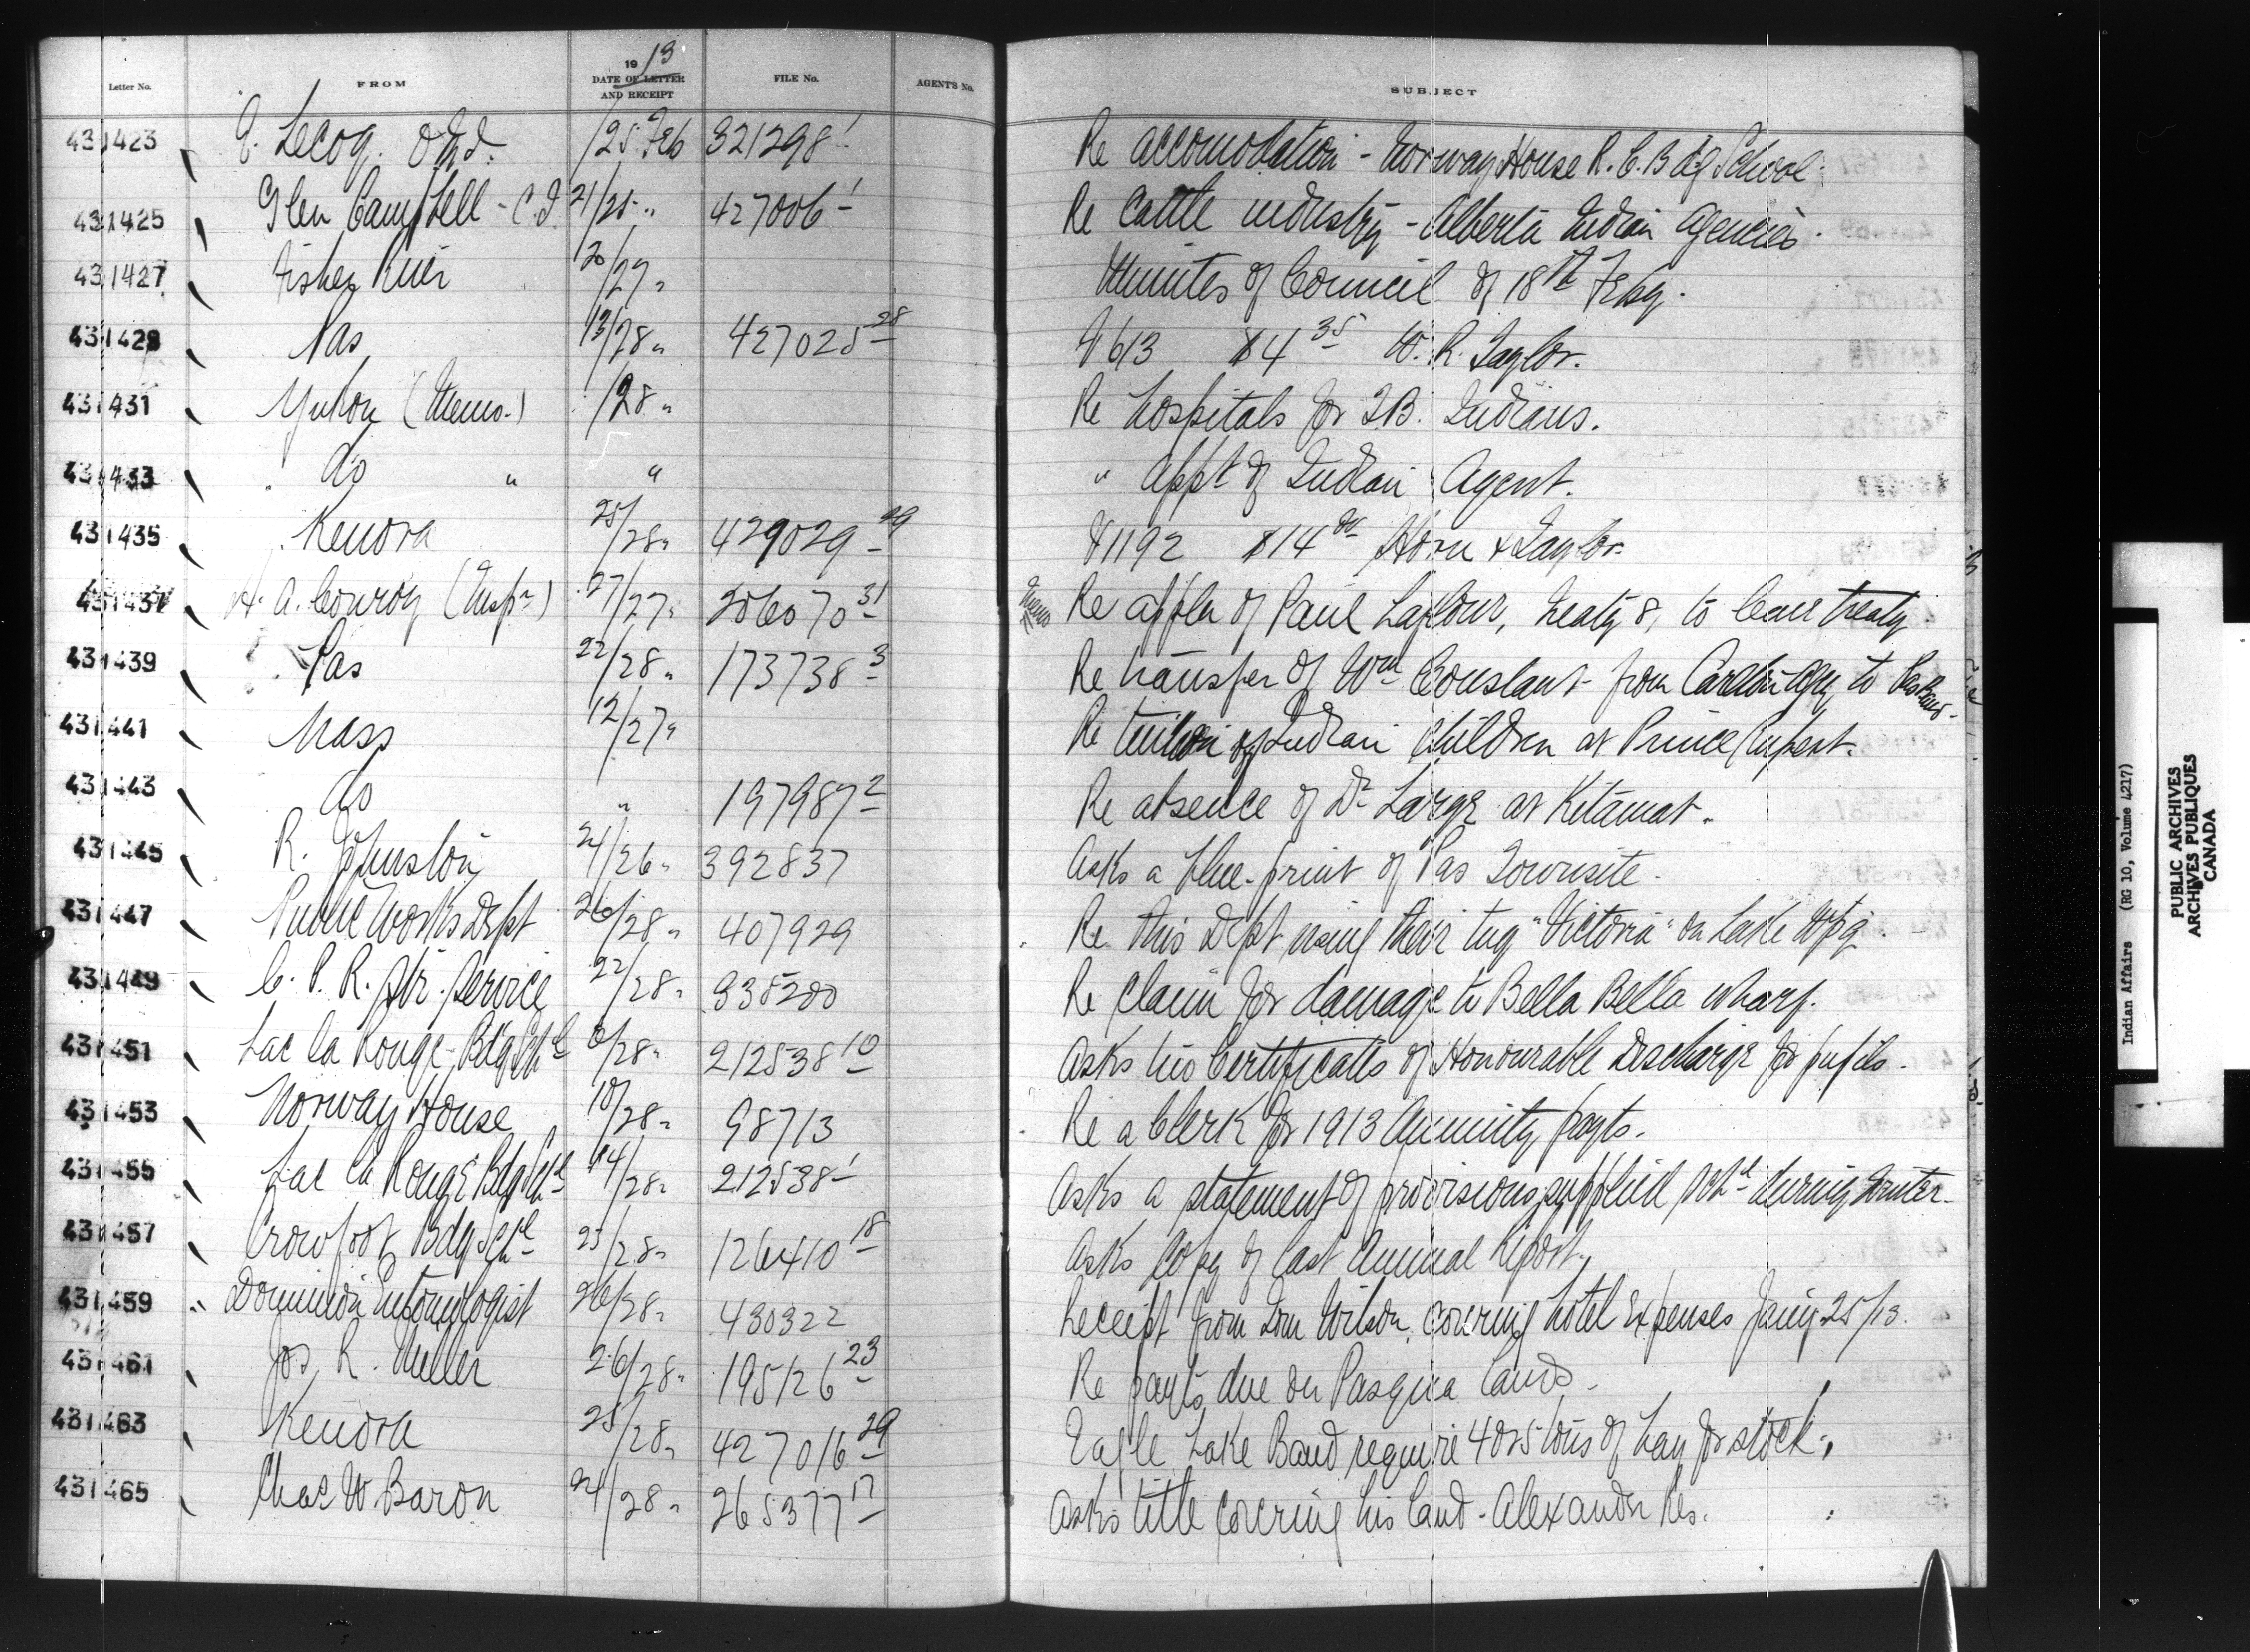 Letter No. FROM 1913 DATE OF LETTER AND RECEIPT FILE No. AGENT'S No. SUBJECT
431423 E. Lecoq. /25 Feb 321298-1 Re accomodation - Norway House R.C. Bdg School.
431425 Glen Campbell - C.I. 21/25 " 427006-1 Re Cattle industry - Alberta Indian Agencies.
431427 Fisher River 20/27 " Minutes of Council of 18th Feby.
431429 Pas 13/28 " 427025-28 V 613 $4 35 W. R. Taylor.
431431 Yukon (Memo.) /28 " Re hospitals for T.B. Indians.
431433 do " " " appt of Indian Agent.
431435 Kenora 25/28 " 429029-29 V 1192 $14 Horn & Taylor.
431437 H. A. Conroy (Inspr) 27/27 " 206070-31 Memo Re appln of Paul Laflour, Treaty 8, to leave treaty.
431439 Pas 22/28 " 173738-3 Re transfer of Wm Constant from Carlton Agy to Pas Band.
431441 Nass 12/27 " Re tuition of Indian Children at Prince Rupert.
431443 do " 197987-2 Re absence of Dr Large at Kitamat.
431445 R. Johnston 24/26 " 392837 Asks a blue-print of Pas Townsite.
431447 Public Works Dept 26/28 " 407929 Re this Dept using their tug "Victoria" on Lake Wpg.
431449 C. P. R. Str. Service 22/28 " 335200 Re claim for damage to Bella Bella wharf.
431451 Lac la Rouge Bdg Schl 8/28 " 212538-10 Asks his Certificates of Honourable Discharge for pupils.
431453 Norway House 10/28 " 98713 Re a Clerk for 1913 Annuity payts.
431455 Lac la Rouge Bdg Schl 14/28 " 212538-1 Asks a statement of provisions supplied Schl during Winter.
431457 Crowfoot Bdg Schl 25/28 " 126410-18 Asks copy of last Annual Report.
431459 Dominion Entomologist 26/28 " 430322 Receipt from Tom Wilson covering hotel expenses Jany 25/13.
431461 Jos. R. Miller 26/28 " 195126-23 Re payts due on Pasqua lands.
431463 Kenora 25/28 " 427016-29 Eagle Lake Band require 4 or 5 tons of hay for stock.
431465 Chas W Baron 24/28 " 265377-17 Asks title covering his land - Alexander Res.
Indian Affairs (RG 10, Volume 4217)
PUBLIC ARCHIVES
ARCHIVES PUBLIQUES
CANADA